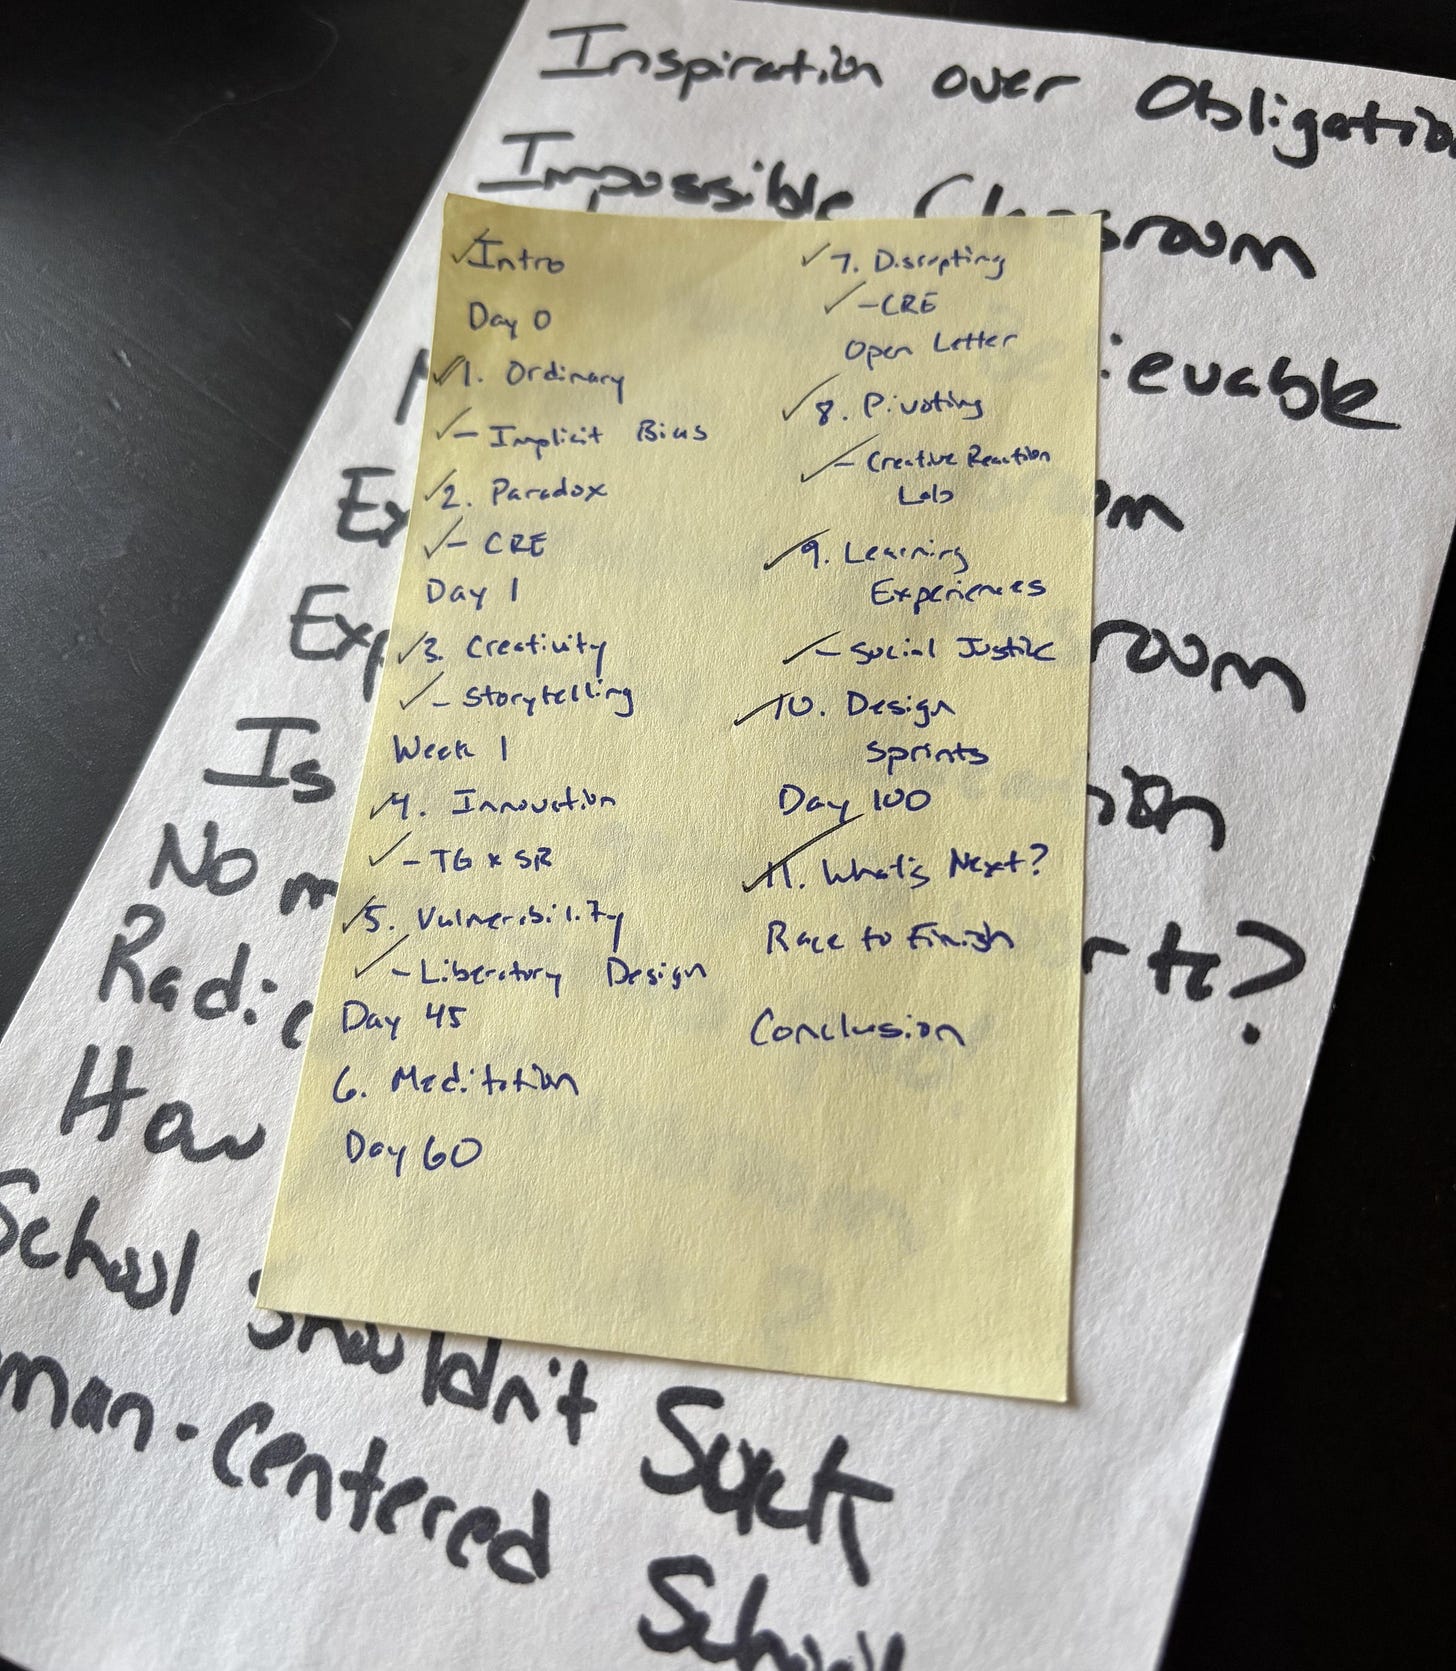 Inspiration over Obligation
Impossible Classroom
ievable
Ex om
Exp room
Is ion
No m
Radic rtc?
How
School Shouldn't Suck
man-Centered School
✓Intro
Day 0
✓1. Ordinary
✓- Implicit Bias
✓2. Paradox
✓- CRE
Day 1
✓3. Creativity
✓- Storytelling
Week 1
✓4. Innovation
✓- TG x SR
✓5. Vulnerability
✓- Liberatory Design
Day 45
6. Meditation
Day 60
✓7. Disrupting
✓- CRE
Open Letter
✓8. Pivoting
✓- Creative Reaction
Lab
✓9. Learning
Experiences
✓- Social Justice
✓10. Design
Sprints
Day 100
✓11. What's Next?
Race to Finish
Conclusion